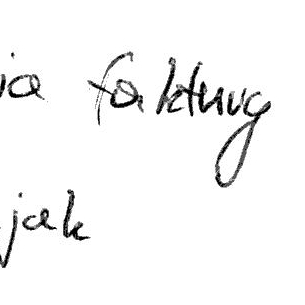 ia faktury
jak